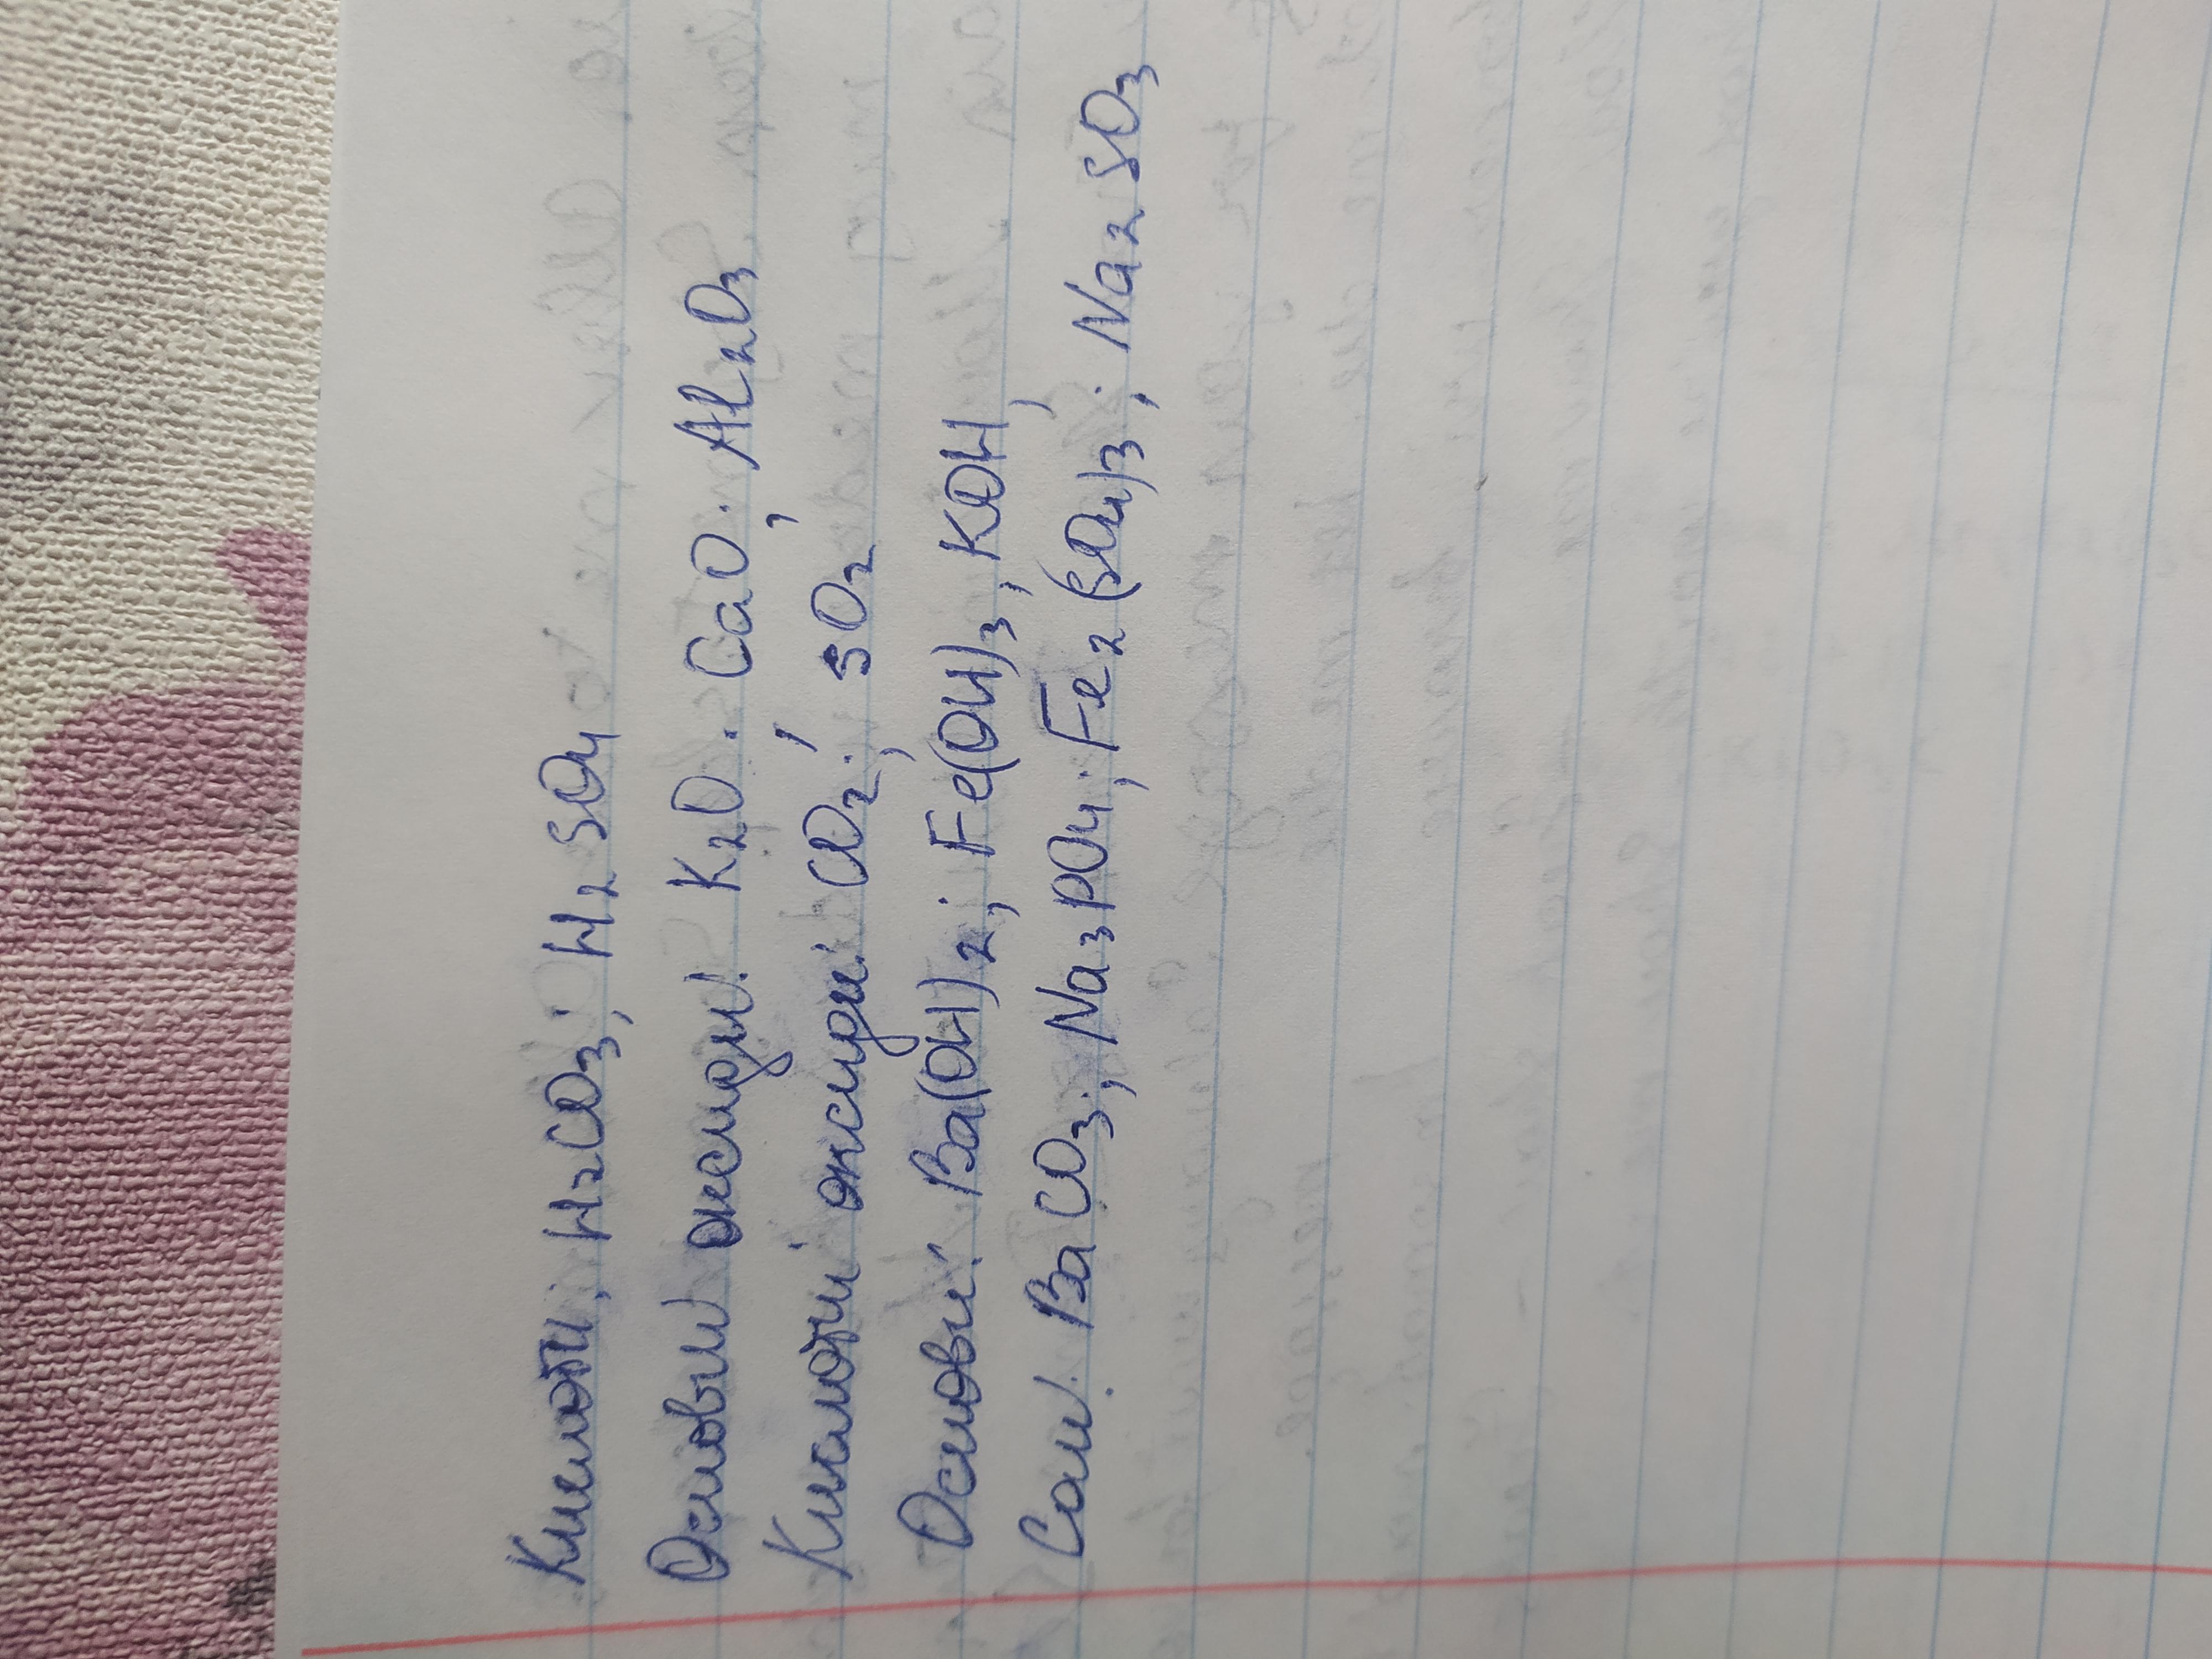 Кислоти: H₂CO₃; H₂SO₄
Основні оксиди: K₂O; CaO; Al₂O₃
Кислотні оксиди: CO₂; SO₂
Основи: Ba(OH)₂; Fe(OH)₃; KOH
Солі: BaCO₃; Na₃PO₄; Fe₂(SO₄)₃; Na₂SO₃